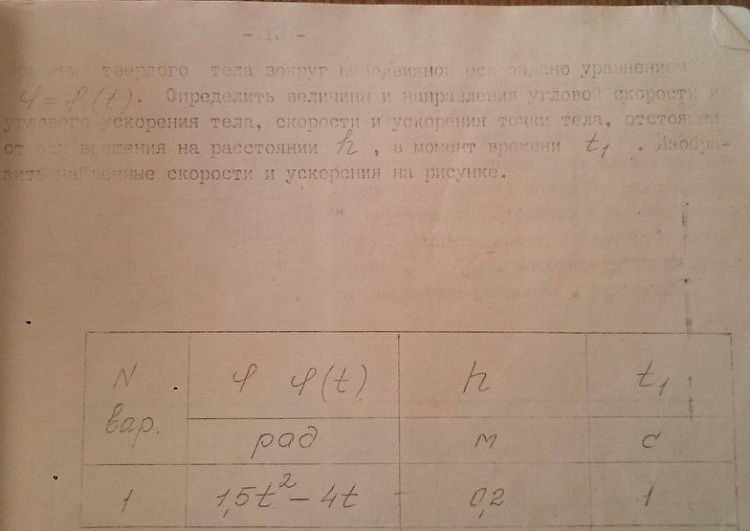 твердого тела вокруг неподвижной оси задано уравнением
φ = φ(t). Определить величины и направления угловой скорости и
углового ускорения тела, скорости и ускорения точки тела, отстоящей
от оси вращения на расстоянии h, в момент времени t₁. Изобра-
зить найденные скорости и ускорения на рисунке.
N вар. φ φ(t) h t₁
рад м с
1 1,5t² – 4t 0,2 1